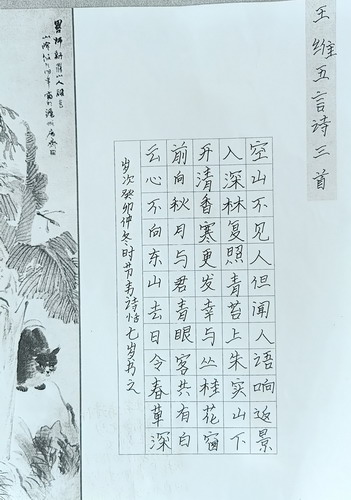 王维五言诗三首
空山不见人但闻人语响返景
入深林复照青苔上朱实山下
开清香寒更发幸与丛桂花窗
前向秋月与君青眼客共有白
云心不向东山去日令春草深
岁次癸卯仲冬时节韦诗恬七岁书之
新羅山人